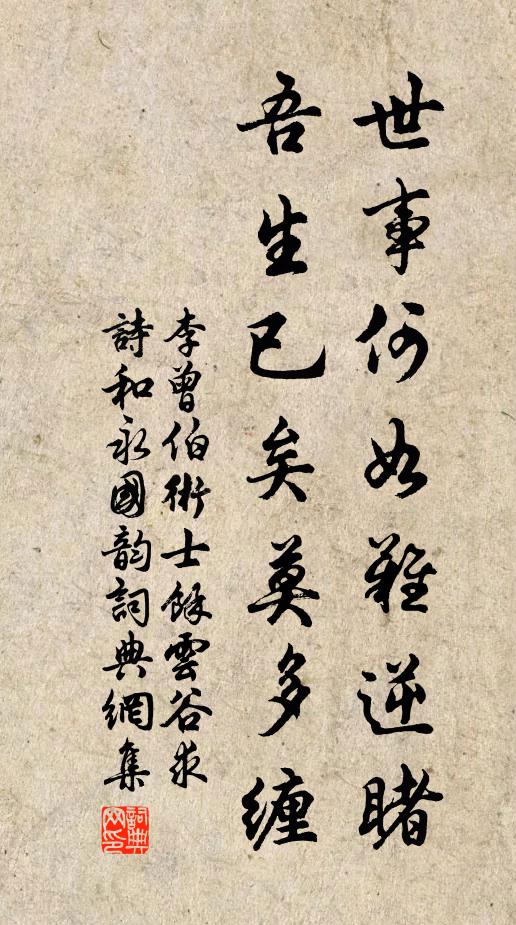 世事何如難逆睹
吾生已矣莫多纏
李曾伯術士餘雲谷求
詩和永國韵詞典網集
詞典网印